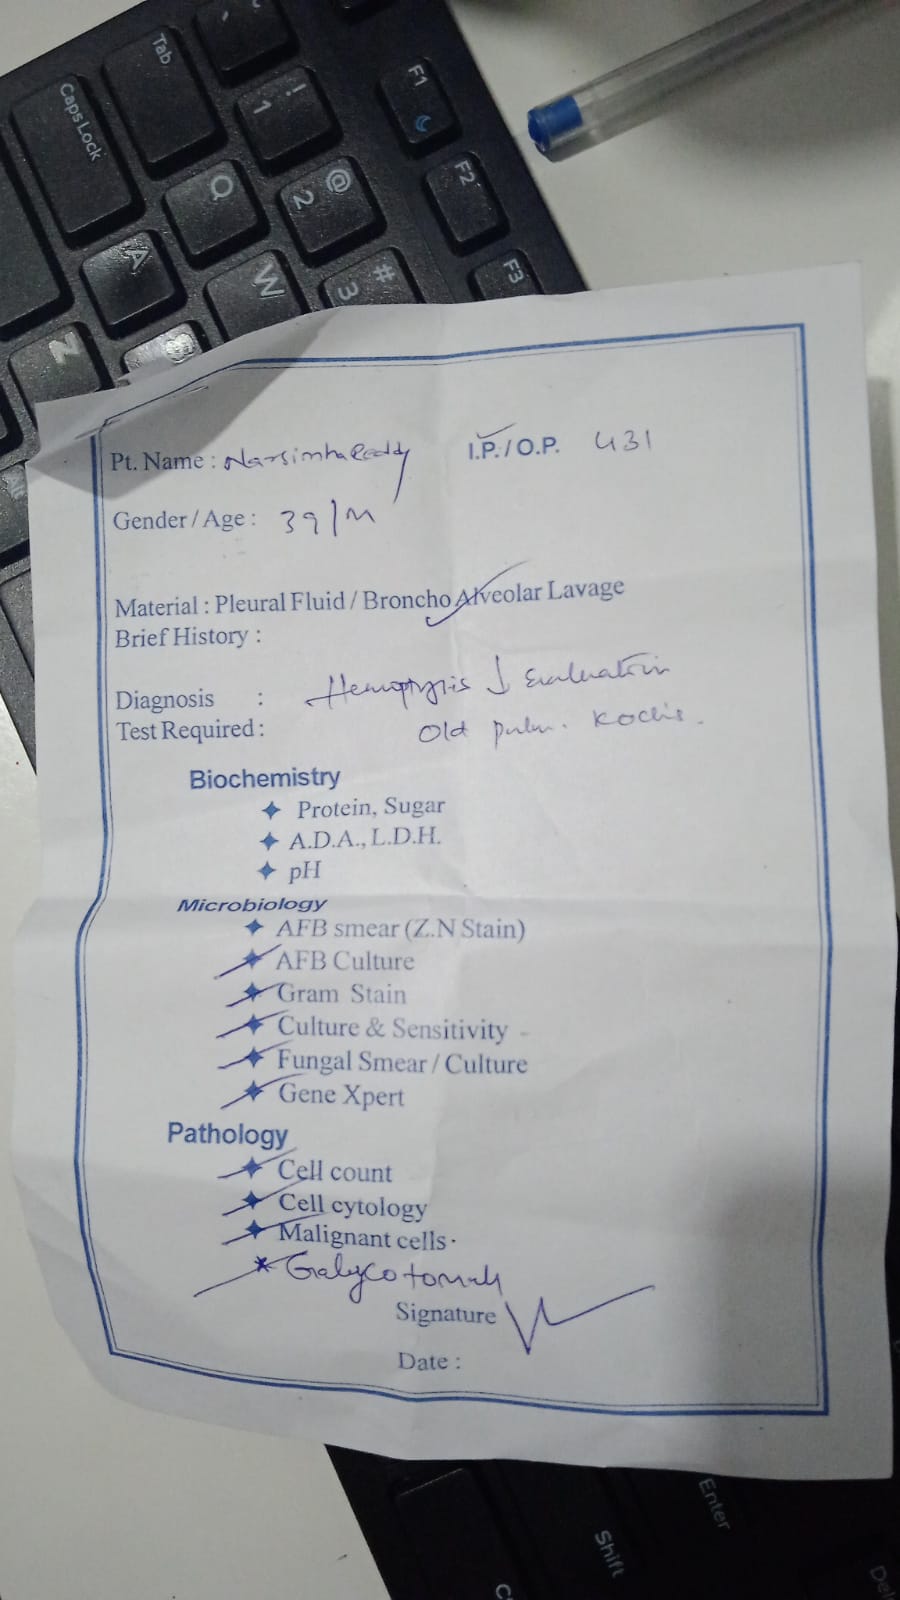 Tab
Caps Lock
! 1
F1
Q
@ 2
F2
A
W
# 3
F3
Z
Pt. Name : Narsimha Reddy I.P. / O.P. 431
Gender / Age : 39/M
Material : Pleural Fluid / Broncho Alveolar Lavage
Brief History :
Diagnosis : Hemoptysis ↓ Evaluation
Test Required : Old pulm. Koch's.
Biochemistry
Protein, Sugar
A.D.A., L.D.H.
pH
Microbiology
AFB smear (Z.N Stain)
AFB Culture
Gram Stain
Culture & Sensitivity -
Fungal Smear / Culture
Gene Xpert
Pathology
Cell count
Cell cytology
Malignant cells.
Signature
Date :
Enter
Shift
Del